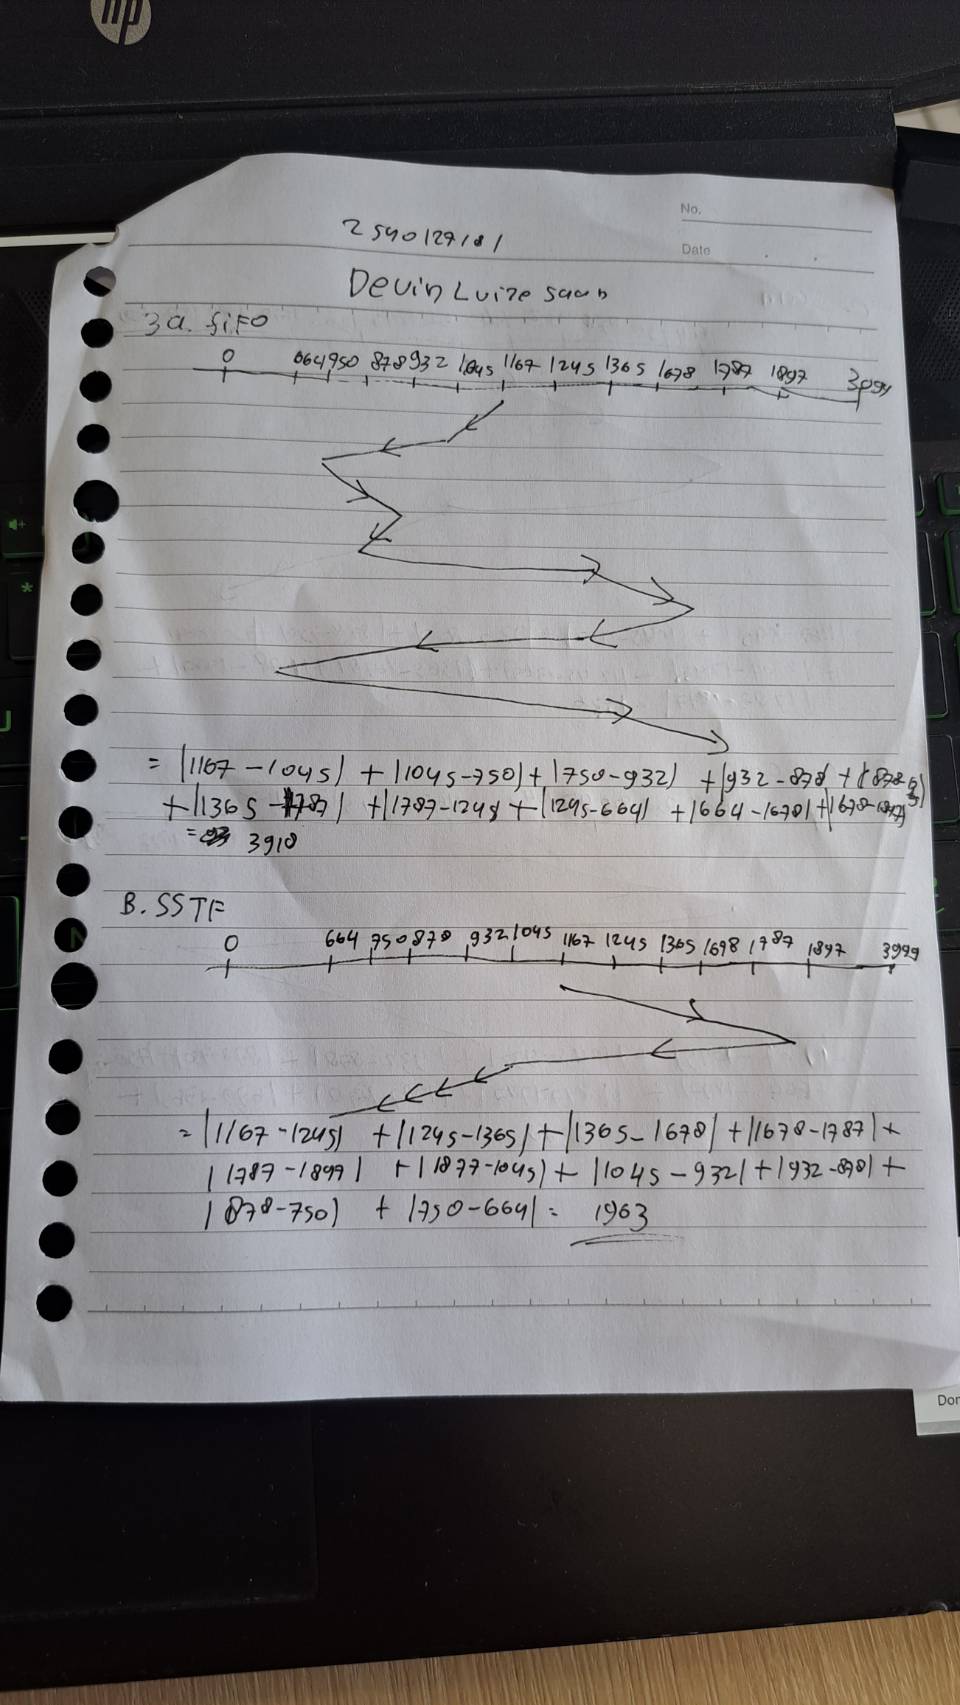 hp
No.
Date
2540127181
Devin Luize
3a. FiFO
0 664 950 878 932 1045 1167 1245 1365 1678 1787 1897
= |1167-1045| + |1045-750| + |750-932| + |932-878| +
+ |1365-1787| + |1787-1245 + |1245-664| + |664-1678| + |1678-1897|
= 3918
B. SSTF
0 664 750 878 932 1045 1167 1245 1365 1698 1787 1897 3999
= |1167-1245| + |1245-1365| + |1365-1678| + |1678-1787| +
|1787-1899| + |1877-1045| + |1045-932| + |932-878| +
|878-750| + |750-664| = 1963
Don